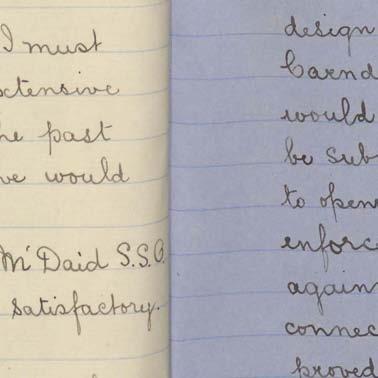 I must
xtensive
he past
ve would
McDaid S.S.O.
satisfactory.
design
Carnd
would
be sub
to open
enforc
again
connec
proved